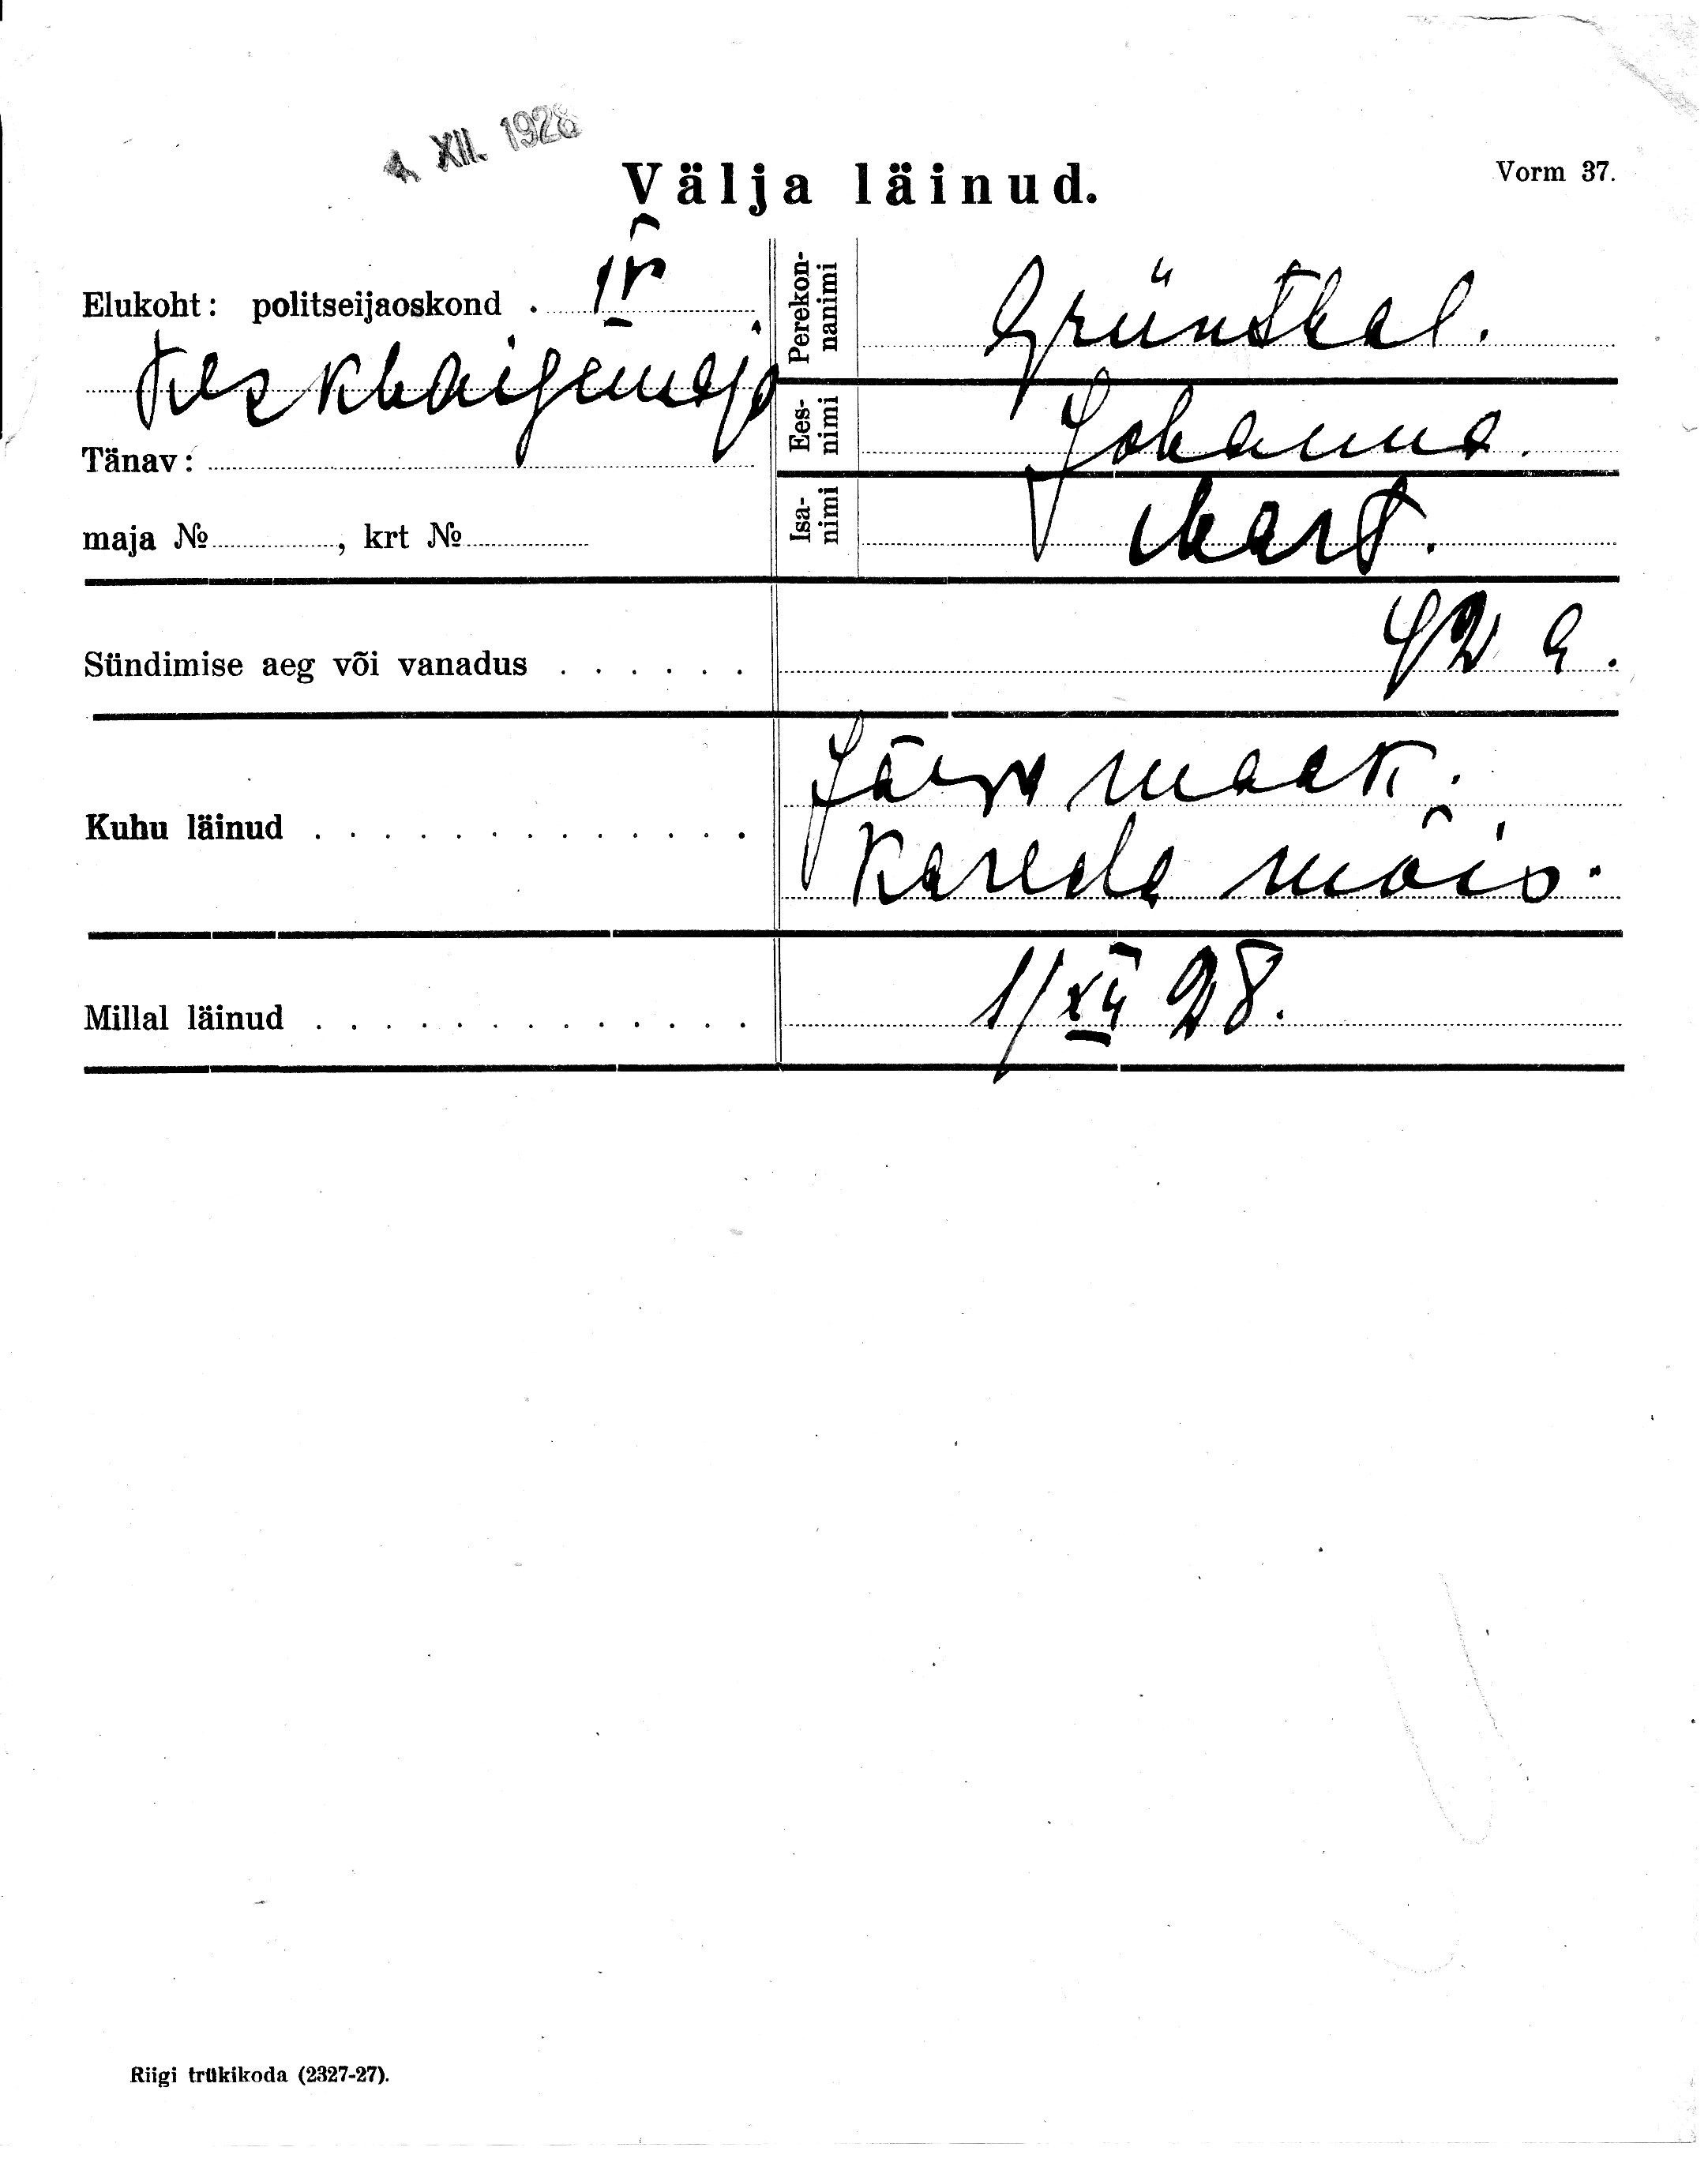 4. XII. 1928
Välja läinud.
Vorm 37.
Elukoht: politseijaoskond . IV
Keskhaigemaja
Tänav:
maja №, krt №
Perekonnanimi Grünthal.
Eesnimi Johanna.
Isanimi Mart.
Sündimise aeg või vanadus . . . . . . 42 a.
Kuhu läinud . . . . . . . . . . . . . Järva maak.
Kareda mõis.
Millal läinud . . . . . . . . . . . . . 1/XII 28.
Riigi trükikoda (2327-27).